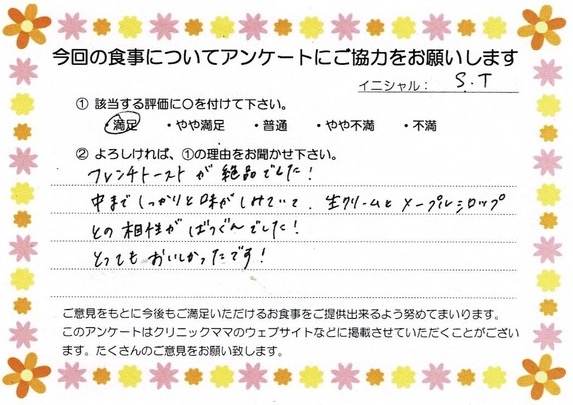 今回の食事についてアンケートにご協力をお願いします
イニシャル： S.T
① 該当する評価に〇を付けて下さい。
・満足 ・やや満足 ・普通 ・やや不満 ・不満
② よろしければ、①の理由をお聞かせ下さい。
フレンチトーストが絶品でした！
中までしっかりと味がしみていて、生クリームとメープルシロップ
との相性がばつぐんでした！
とってもおいしかったです！
ご意見をもとに今後もご満足いただけるお食事をご提供出来るよう努めてまいります。
このアンケートはクリニックママのウェブサイトなどに掲載させていただくことがござい
ます。たくさんのご意見をお願い致します。